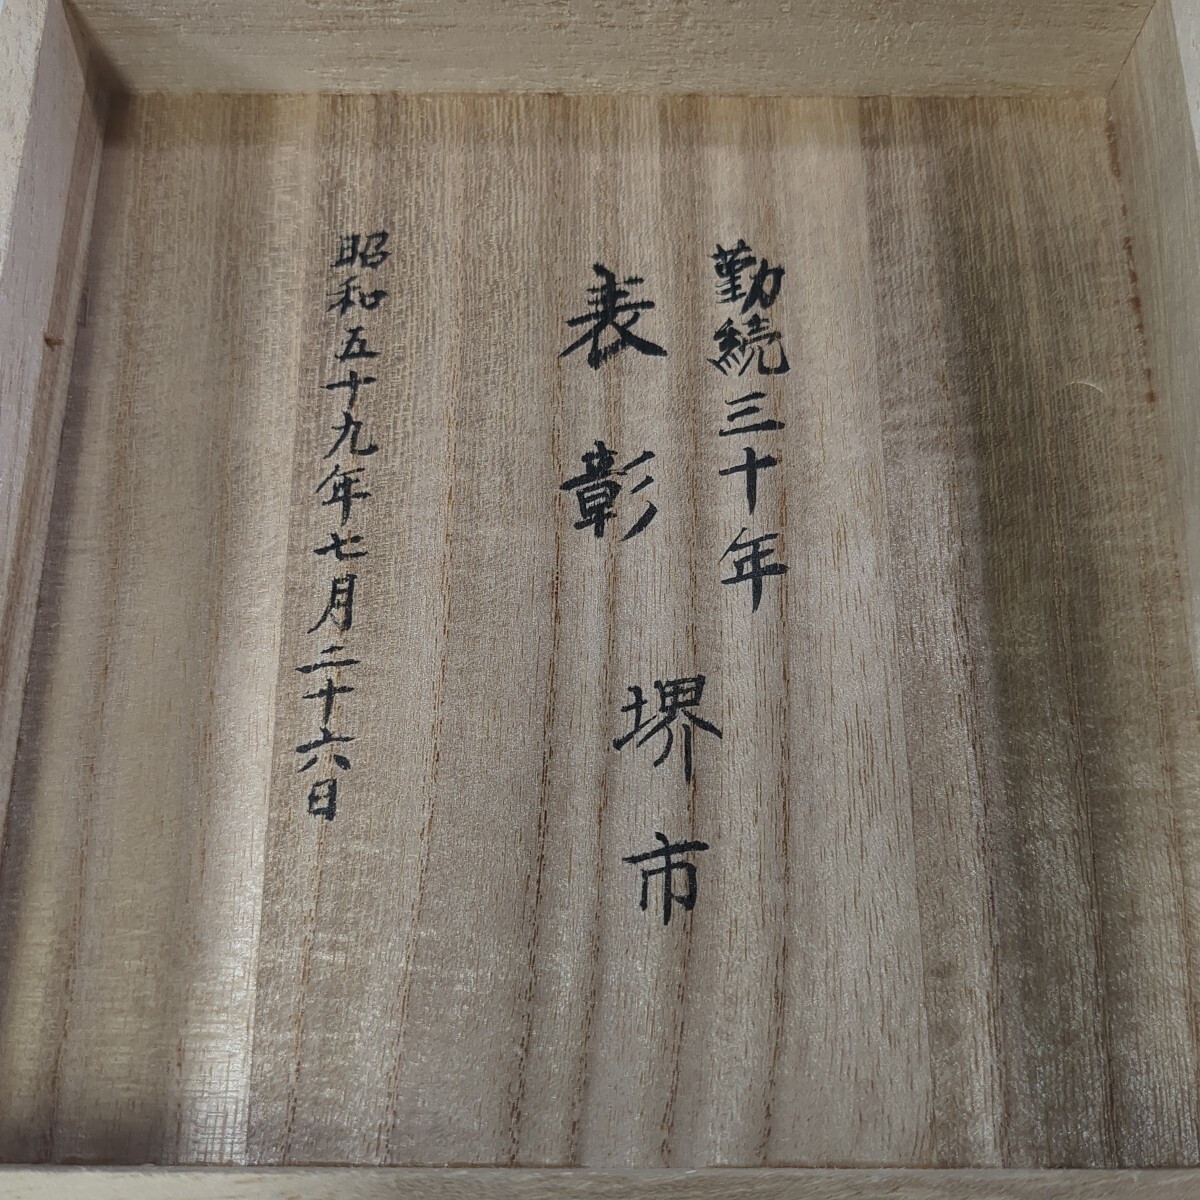 勤続三十年
表彰
堺市
昭和五十九年七月二十六日